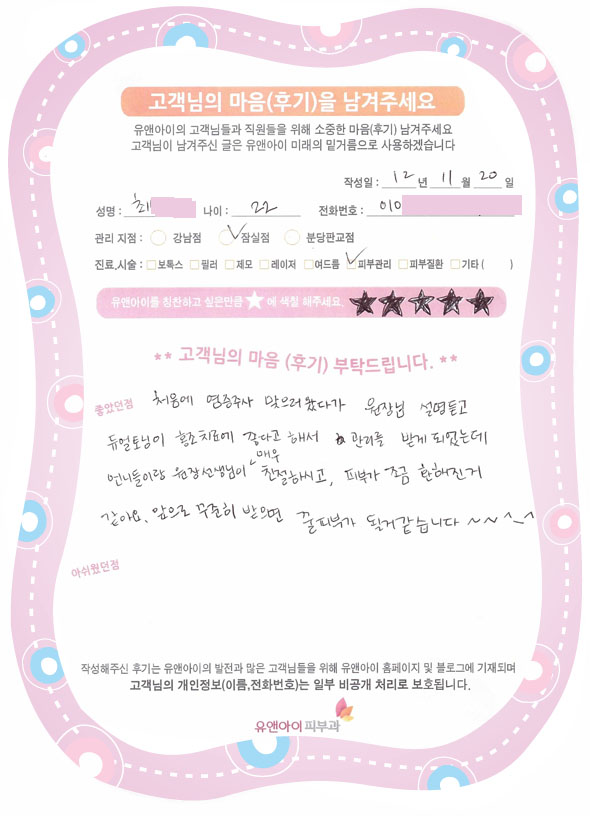 고객님의 마음(후기)을 남겨주세요
유앤아이의 고객님들과 직원들을 위해 소중한 마음(후기) 남겨주세요
고객님이 남겨주신 글은 유앤아이 미래의 밑거름으로 사용하겠습니다
작성일 : 12 년 11 월 20 일
성명 : 최 나이 : 22 전화번호 : 010
관리 지점 : 강남점 잠실점 분당판교점
진료,시술 : 보톡스 필러 제모 레이저 여드름 피부관리 피부질환 기타 ( )
유앤아이를 칭찬하고 싶은만큼 ★ 에 색칠 해주세요 ★★★★★
** 고객님의 마음 (후기) 부탁드립니다. **
좋았던점 처음에 염증주사 맞으러왔다가 원장님 설명듣고
듀얼토닝이 홍조치료에 좋다고 해서 관리를 받게 되었는데
언니들이랑 원장선생님이 매우 친절하시고, 피부가 조금 환해진거
같아요. 앞으로 꾸준히 받으면 꿀피부가 될거같습니다 ~~^_^
아쉬웠던점
작성해주신 후기는 유앤아이의 발전과 많은 고객님들을 위해 유앤아이 홈페이지 및 블로그에 기재되며
고객님의 개인정보(이름,전화번호)는 일부 비공개 처리로 보호됩니다.
유앤아이피부과